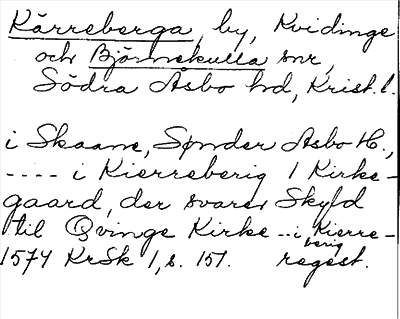 Kärreberga, by, Kvidinge
och Björnekulla snr,
Södra Asbo hd, Krist. l.
i Skaane, Sønder Asbo H.,
---- i Kierreberig 1 Kirke-
gaard, der svarer Skyld
til Qvinge Kirke -- i Kierre-
berig
1574 KrSk 1, s. 151. regest.